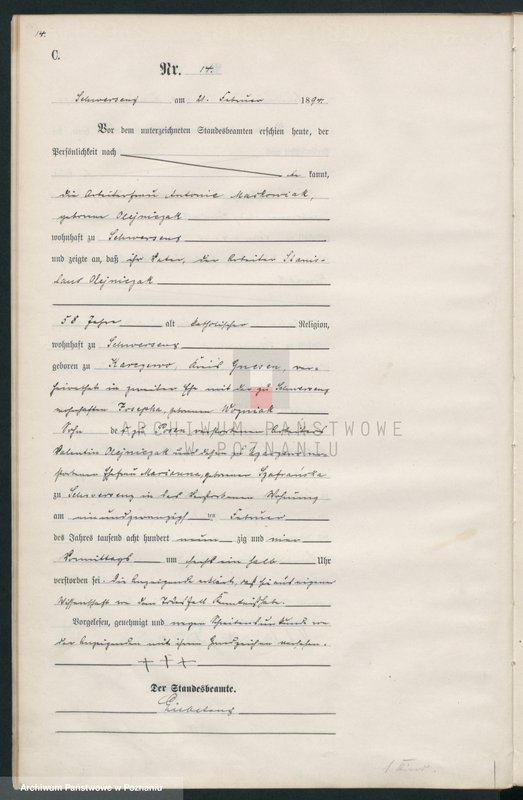 14.
C.
Nr. 14.
Schwersenz am 21. Februar 1894.
Vor dem unterzeichneten Standesbeamten erschien heute, der
Persönlichkeit nach
be kannt,
die Arbeiterfrau Antonie Maćkowiak,
geborene Olejniczak
wohnhaft zu Schwersenz
und zeigte an, daß ihr Vater, der Arbeiter Stanis-
laus Olejniczak
58 Jahre alt katholischer Religion,
wohnhaft zu Schwersenz
geboren zu Karczewo, Kreis Gnesen, ver-
heirathet in zweiter Ehe mit der zu Schwersenz
wohnhaften Josepha, geborenen Wozniak
Sohn des zu Posen verstorbenen Arbeiters
Valentin Olejniczak und dessen zu
storbenen Ehefrau Marianna, geborener Szafrańska
zu Schwersenz in des Verstorbenen Wohnung
am einundzwanzigsten ten Februar
des Jahres tausend acht hundert neun zig und vier
Vormittags um sechs ein halb Uhr
verstorben sei. Die Anzeigende erklärt, daß sie aus eigener
Wissenschaft von dem Todesfall Kenntniß habe.
Vorgelesen, genehmigt und wegen Schreibensunkunde von
der Anzeigenden mit ihrem Handzeichen versehen.
+ + +
Der Standesbeamte.
ARCHIWUM PAŃSTWOWE
W POZNANIU
Archiwum Państwowe w Poznaniu